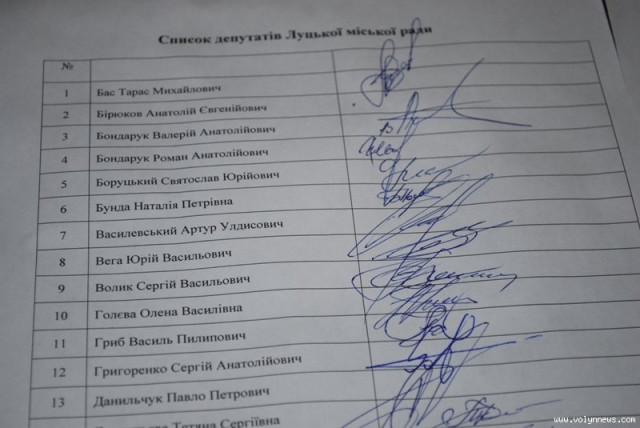 Список депутатів Луцької міської ради
№
1 Бас Тарас Михайлович
2 Бірюков Анатолій Євгенійович
3 Бондарук Валерій Анатолійович
4 Бондарук Роман Анатолійович
5 Боруцький Святослав Юрійович
6 Бунда Наталія Петрівна
7 Василевський Артур Улдисович
8 Вега Юрій Васильович
9 Волик Сергій Васильович
10 Голєва Олена Василівна
11 Гриб Василь Пилипович
12 Григоренко Сергій Анатолійович
13 Данильчук Павло Петрович
Тетяна Сергіївна
www.volynnews.com